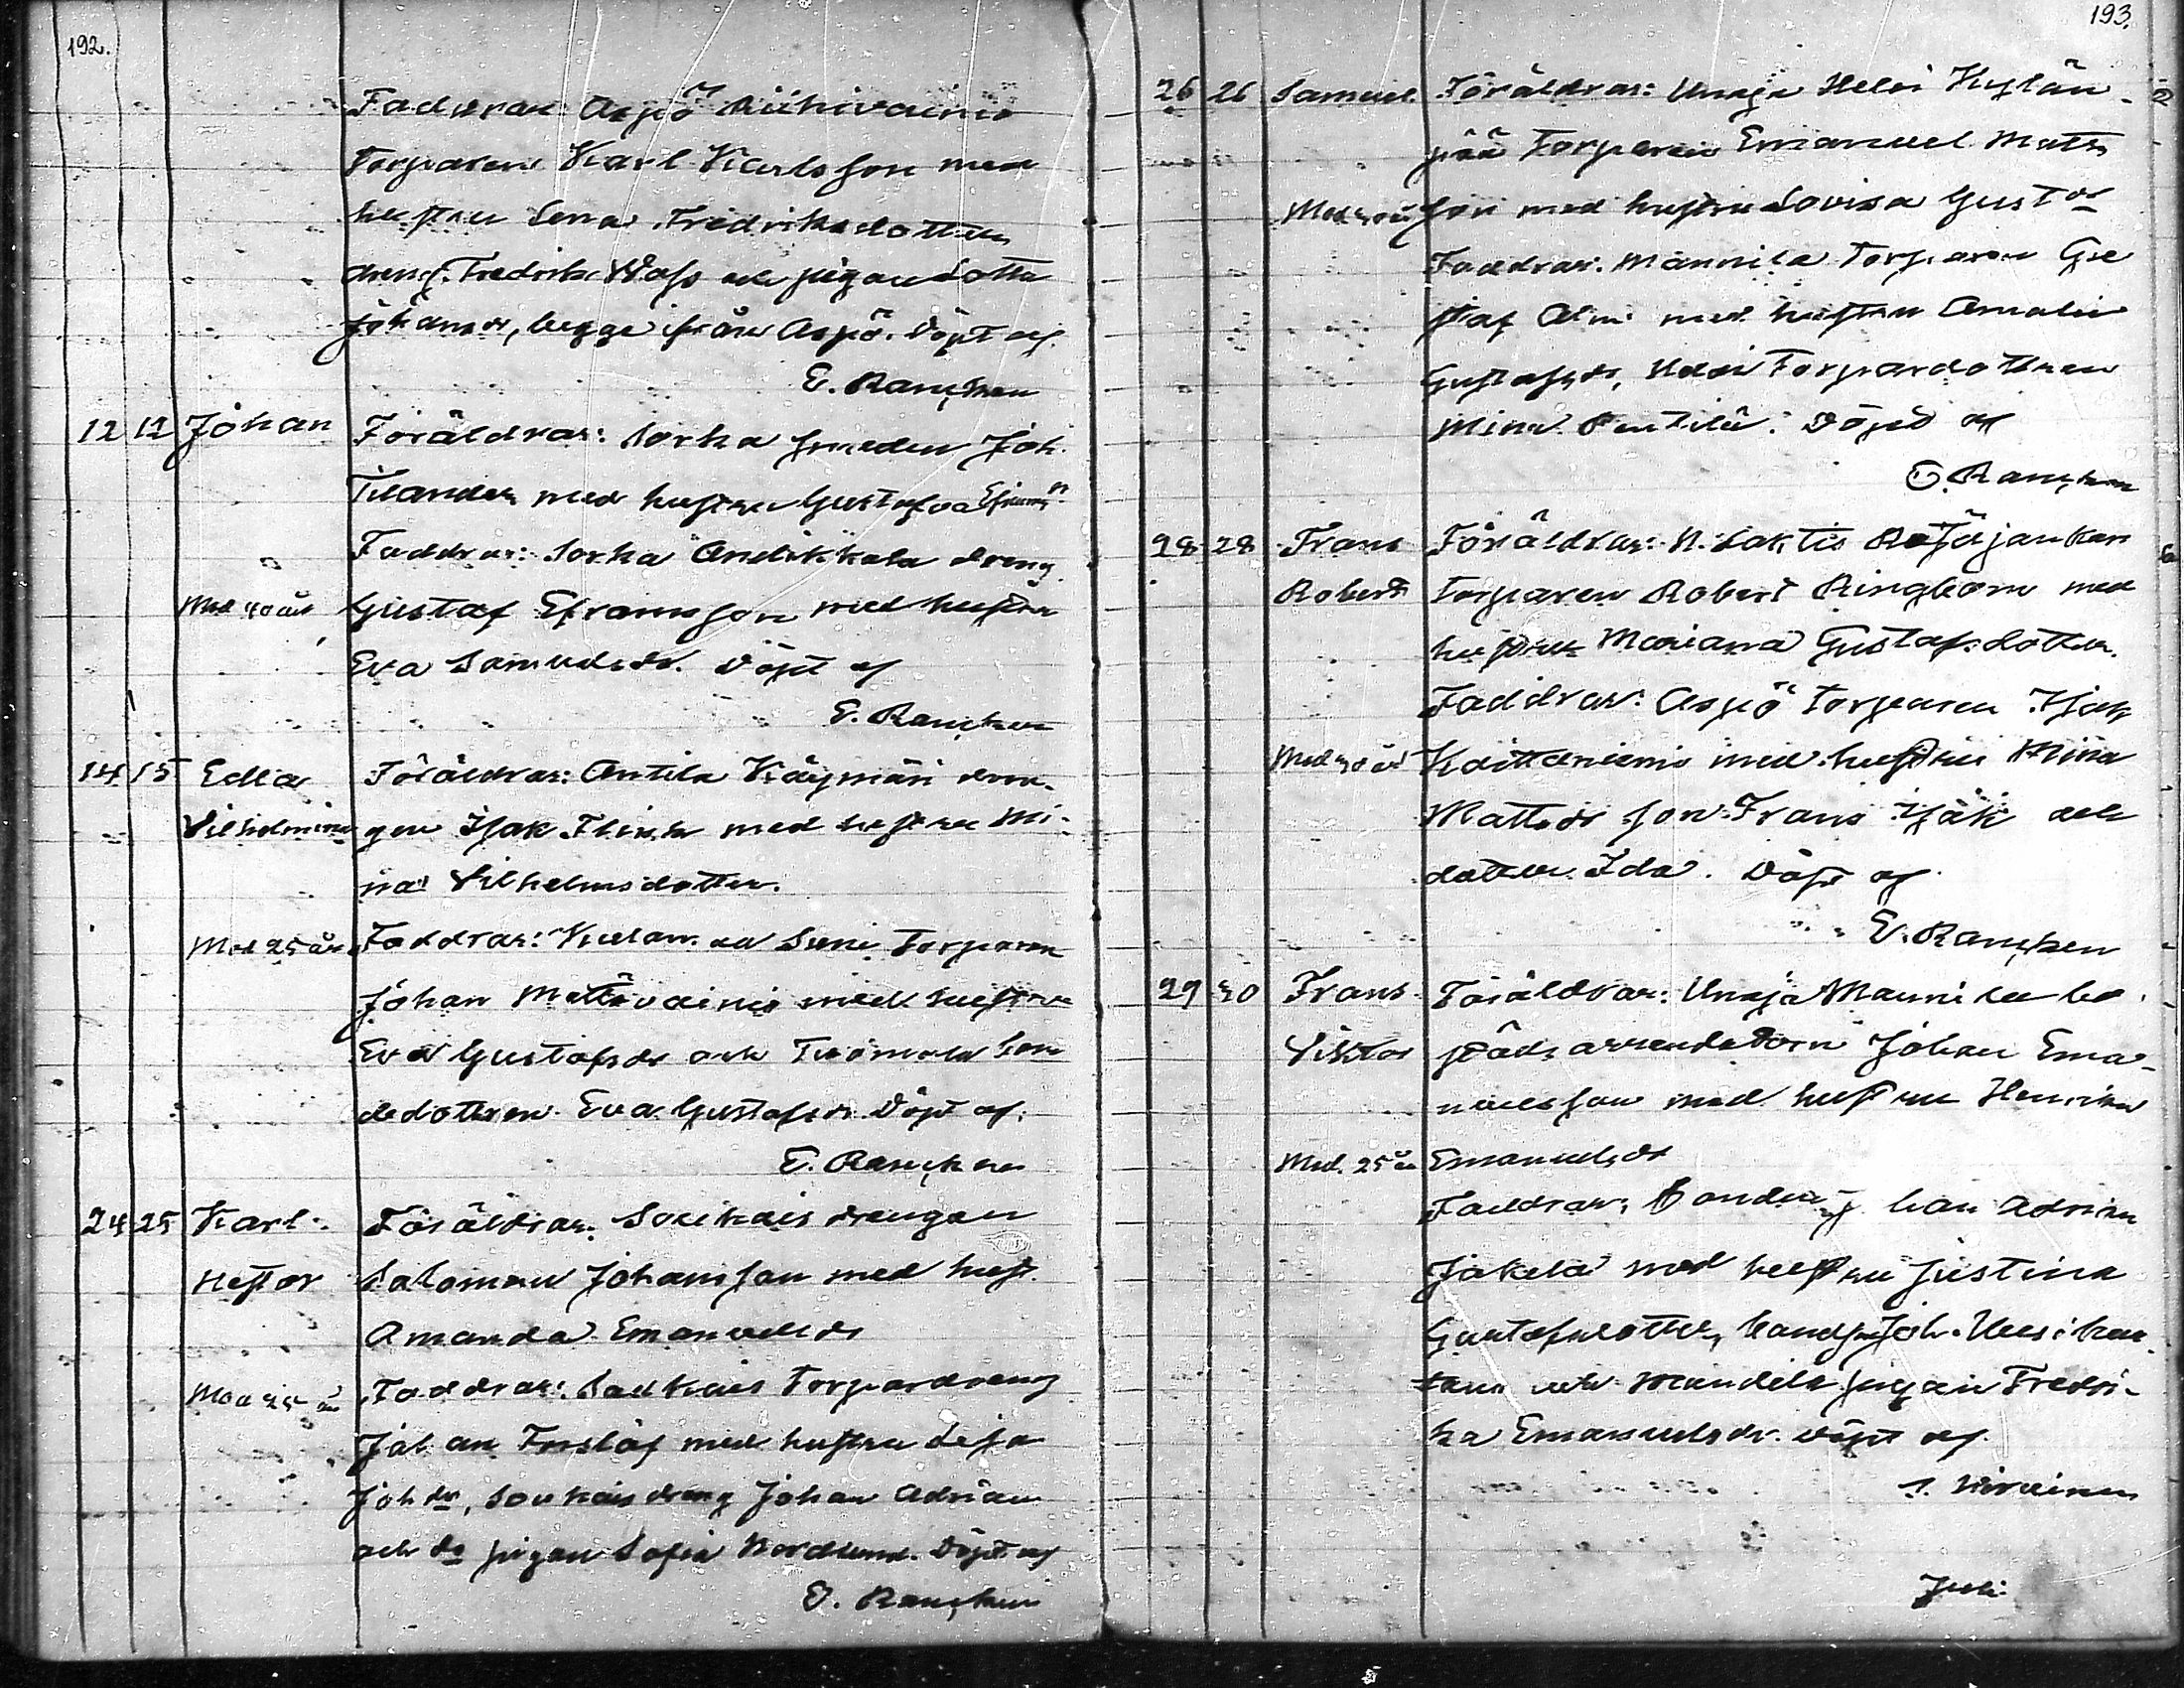 192.
Faddrar: Aspö Riihivainio
Torparen Karl Karlsson med
hustru Lena Fredriksdotter
dreng. Fredrik Wass och pigan Lotta
Johansdr, begge från Aspö. Döpt af
E. Rancken
12 12 Johan Föräldrar: Sorka smeden Joh.
Tilander med hustru Gustafva Efraims
Faddrar: Sorka Andikkala dreng
Mod 40 år Gustaf Eframsson med hustru
Eva Samuelsdr. Döpt af
E. Rancken
14 15 Edla Föräldrar: Antila Käymäri dren-
Vilhelmina gen Isak Flink med hustru Mi-
na Vilhelmsdotter.
Mod 25 år Faddrar: Suni Torparen
Johan Mattavainio med hustru
Eva Gustafsdr och Tuomola
dottren Eva Gustafsdr. Döpt af
E. Rancken
24 25 Karl Föräldrar: Soukais drengen
Hestor Saloman Johansson med hust.
Amanda Emanuelsdr
Mod 25 år Faddrar: Soukais Torpardreng
Johan Forslöf med hustru Lisa
Johdr, Soukais dreng Johan Adrian
och do pigan Sofia Nordlund. Döpt af
E. Rancken
193.
26 26 Samuel Föräldrar: Unaja Heloi Kylän
pää Torparen Emanuel Mats
Mod 40 år son med hustru Lovisa Gustdr
Faddrar: Mannila Torparen Gu
staf Alni med hustru Amalia
Gustafsdr, Torpardottren
Mina Penttilä. Döpt af
E. Rancken
28 28 Frans Föräldrar: N.
Robert Torparen Robert Ringbom med
hustru Mariana Gustafsdotter.
Faddrar: Aspö Torparen Isak
Mod 30 år Koittaniemi med hustru Mina
Mattsdr son Frans Isak och
dotter Ida. Döpt af
E. Rancken
29 30 Frans Föräldrar: Unaja Mannila bo
Viktor städs arrendatorn Johan Ema-
nuelsson med hustru Henrika
Mod. 25 år Emanuelsdr
Faddrar: Adrian
Jakola med hustru Justina
Gustafsdotter, Joh. Uusikar
tano och Mandila pigan Fredri-
ka Emanuelsdr. Döpt af

Juli